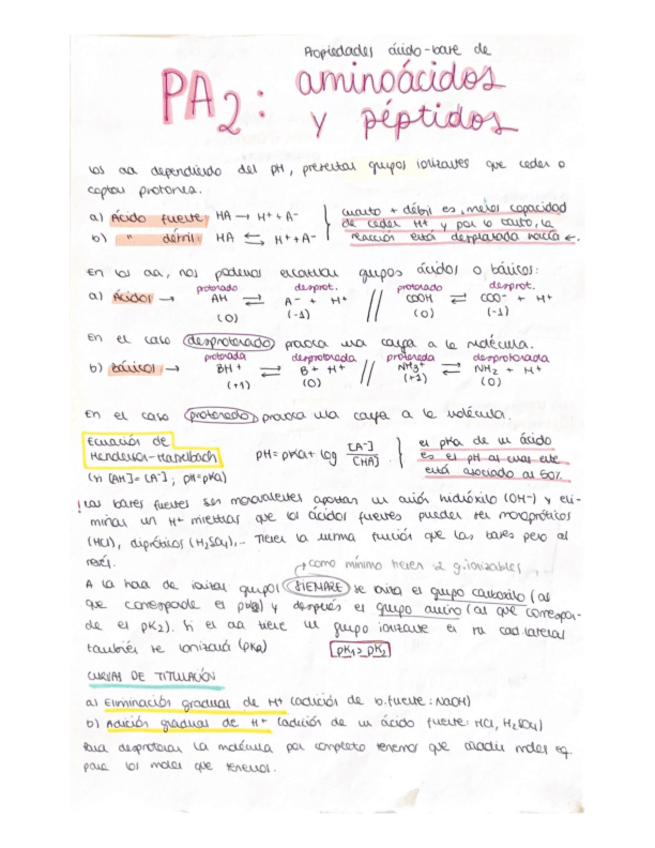 Propiedades ácido-base de
PA2: aminoácidos
y péptidos
Los aa dependiendo del pH, presentan grupos ionizantes que ceder o
captan protones.
a) Ácido fuerte HA → H+ + A-
b) " débil: HA ⇌ H+ + A-
cuanto + débil es, menos capacidad
de ceder H+ y por lo tanto, la
reacción está desplazada hacia ←.
En los aa, nos podemos encontrar grupos ácidos o básicos:
protonado desprot. protonado desprot.
a) Ácidos → AH ⇌ A- + H+ // COOH ⇌ COO- + H+
(0) (-1) (0) (-1)
En el caso desprotonado provoca una carga a la molécula.
protonada desprotonada protonada desprotonada
b) básicos → BH+ ⇌ B + H+ // NH3+ ⇌ NH2 + H+
(+1) (0) (+1) (0)
En el caso protonado provoca una carga a la molécula.
Ecuación de
Henderson-Hasselbach
pH = pKa + log [A-]/[HA]
(si [AH]=[A-]; pH=pKa)
el pKa de un ácido
es el pH al cual este
está asociado al 50%.
! Las bases fuertes son monovalentes aportan un anión hidróxilo (OH-) y eli-
minan un H+ mientras que los ácidos fuertes pueden ser monopróticos
(HCl), dipróticos (H2SO4),... Tienen la misma función que las bases pero al
revés.
como mínimo tienen 2 g.ionizables
A la hora de ionizar grupos SIEMPRE se ioniza el grupo carboxilo (al
que corresponde el pK1) y después el grupo amino (al que correspon-
de el pK2). Si el aa tiene un grupo ionizante en su cad.lateral
también se ionizará (pKR) pK1>pK2
CURVAS DE TITULACIÓN
a) Eliminación gradual de H+ (adición de b.fuerte: NaOH)
b) Adición gradual de H+ (adición de un ácido fuerte: HCl, H2SO4)
Para desprotonar la molécula por completo tenemos que añadir moles eq.
para los moles que tenemos.